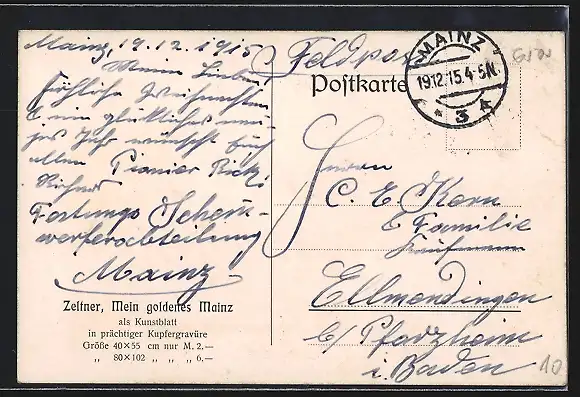 Mainz, 19.12.1915
Meine Lieben
Fröhliche Weihnachten
& ein glückliches neu-
jes Jahr wünscht Euch
allen Pionier
Festungs Schein-
werferabteilung
Mainz
Zeltner, Mein goldenes Mainz
als Kunstblatt
in prächtiger Kupfergravüre
Größe 40×55 cm nur M. 2.—
„ 80×102 „ „ „ 6.—
Feldpost
Postkarte
MAINZ
19.12.15.4-5N.
* 3 A
Herrn
C. E. Kern
& Familie
Kaufmann
Ellmendingen
b/ Pforzheim
i. Baden
10